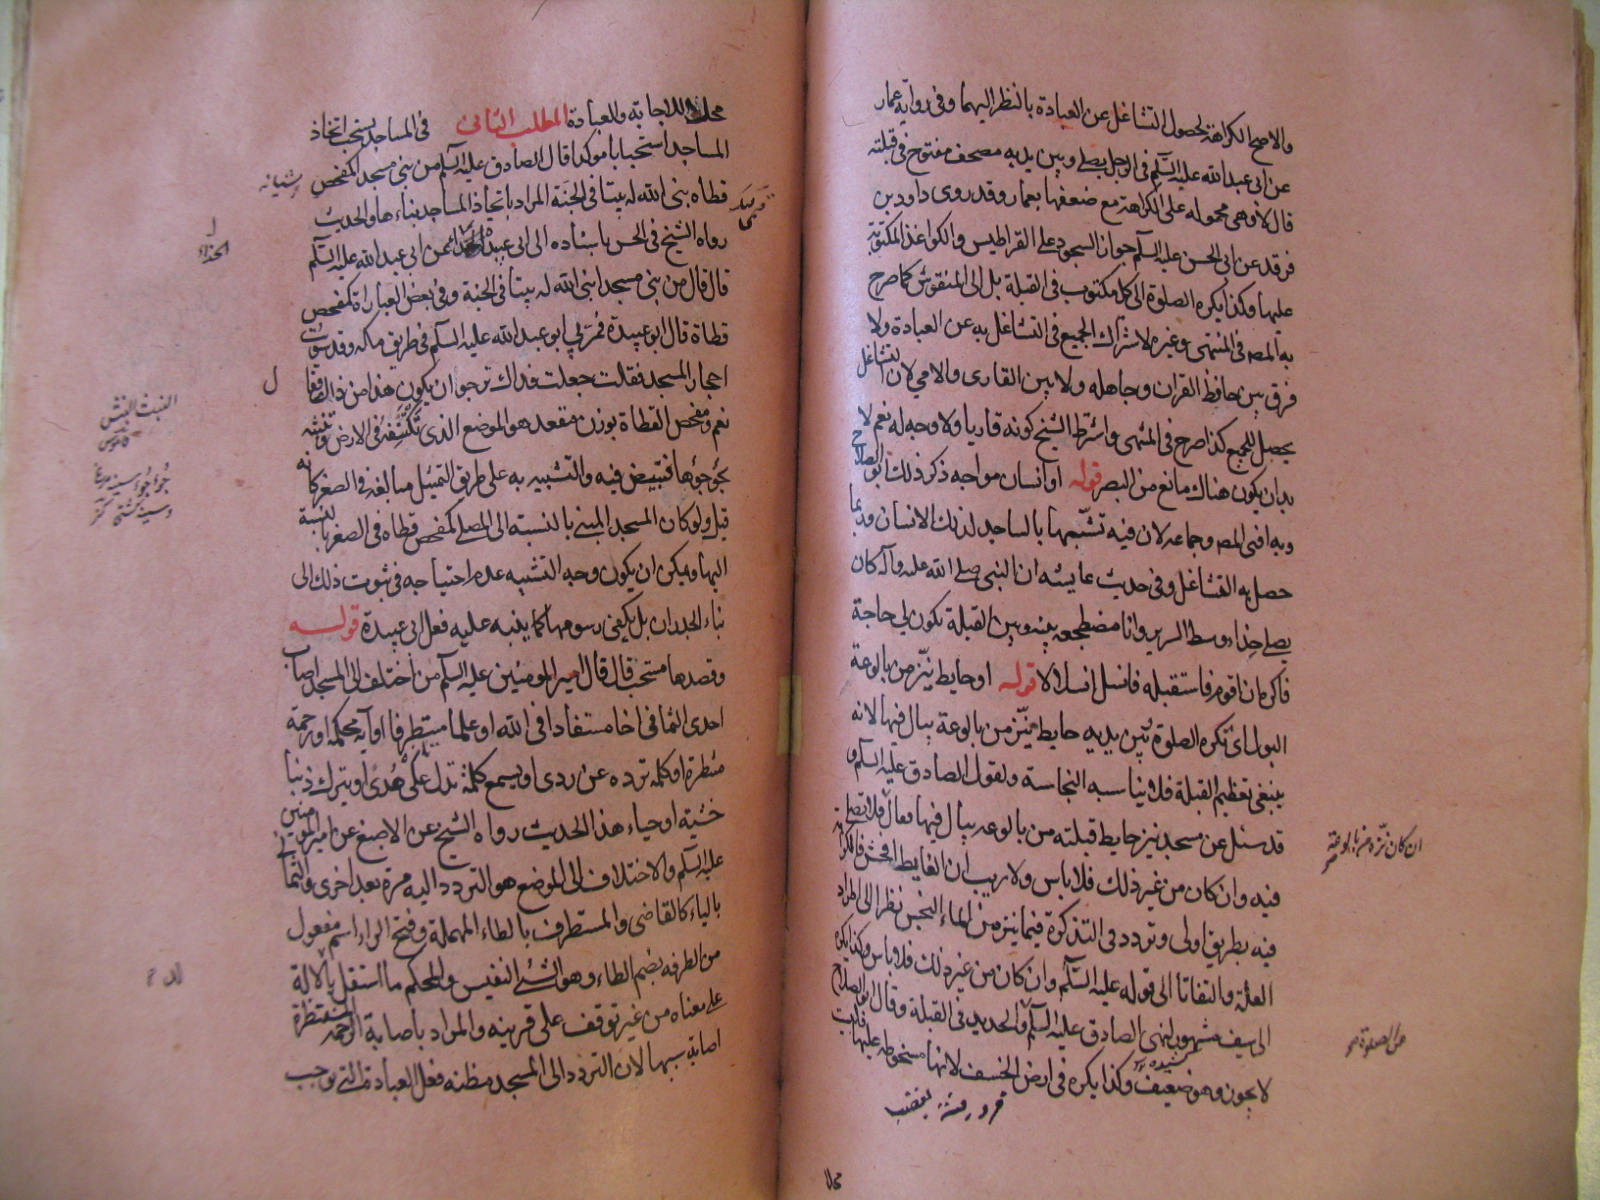 والاصح الكراهة لحصول التشاغل عن العبادة بالنظر اليهما وفى رواية عمار
عن ابى عبدالله عليه السلم فى الرجل يصلى وبين يديه مصحف مفتوح فى قبلته
قال لا وهى محموله على الكراهة مع ضعفها بعمار وقد روى داود بن
فرقد عن ابى الحسن عليه السلم جواز السجود على القراطيس والكواغذ المكتوبة
عليها وكذا يكره الصلوة الى كل مكتوب فى القبلة بل الى المنقوش كما صرح
به المصـ فى المنتهى وغيره لاشتراك الجميع فى التشاغل به عن العبادة ولا
فرق بين حافظ القران وجاهله ولا بين القارى والامى لان التشاغل
يحصل للجميع كذا صرح فى المنتهى واشترط الشيخ كونه قاريا ولا وجه له نعم لا
بد ان يكون هناك مانع من البصر قوله او انسان مواجه ذكر ذلك ابو الصلاح
وبه افتى المصـ وجماعه لان فيه تشبها بالساجد لذلك الانسان وربما
حصل به التشاغل وفى حديث عايشه ان النبى صلى الله عليه وآله كان
يصلى حذاء وسط السرير وانا مضطجعه بينه وبين القبلة تكون لى حاجة
فاكره ان اقوم فاستقبله فانسل انسلالا قوله او حايط ينز من بالوعة
البول اى تكره الصلوة وبين يديه حايط ينز من بالوعة يبال فيها لانه
ينبغى تعظيم القبلة فلا يناسبه النجاسة ولقول الصادق عليه السلم و
قد سئل عن مسجد ينز حايط قبلته من بالوعه يبال فيها فقال فلا تصل
فيه وان كان من غير ذلك فلا باس ولا ريب ان الغايط افحش فالكراهة
فيه بطريق اولى وتردد فى التذكرة فيما ينز من الماء النجس نظرا الى اطراد
العلة والتفاتا الى قوله عليه السلم وان كان من غير ذلك فلا باس وكذا يكره
الى سيف مشهور لنهى الصادق عليه السلم والحديد فى القبلة وقال ابو الصلاح
لا يجوز وهو ضعيف وكذا يكره فى ارض الخسف لانها مسخوطه عليها
ان كان نزه من البالوعة
محلا
محلا للاجابة والعبادة المطلب الثانى فى المساجد يستحب اتخاذ
المساجد استحبابا مؤكدا قال الصادق عليه السلم من بنى مسجدا كمفحص
قطاه بنى الله له بيتا فى الجنة المراد باتخاذ المساجد بناءها والحديث
رواه الشيخ فى الحسن باسناده الى ابى عبيدة الحذاء عن ابى عبدالله عليه السلم
قال قال من بنى مسجدا بنى الله له بيتا فى الجنة وفى بعض العباراة كمفحص
قطاة قال ابو عبيدة فمر بى ابو عبدالله عليه السلم فى طريق مكه وقد سويت
احجار المسجد فقلت جعلت فداك نرجو ان يكون هذا من ذاك فقال
نعم ومفحص القطاة بوزن مقعد هو الموضع الذى تكشفه فى الارض وتنبثه
بجؤجؤها فتبيض فيه والتشبيه به على طريق التمثيل مبالغه فى الصغر كانه
قيل ولو كان المسجد المبنى بالنسبته الى المصلى كمفحص قطاه فى الصغر بالنسبة
اليها ويمكن ان يكون وجه التشبيه عدم احتياجه فى ثبوت ذلك الى
بناء الجدران بل يكفى رسومها كما ينبه عليه فعل ابى عبيدة قوله
وقصدها مستحب قال قال امير المومنين عليه السلم من اختلف الى المسجد اصاب
احدى الثمانى اخا مستفادا فى الله او علما مستطرفا او آية محكمة او رحمة
منتظرة او كلمة ترده عن ردى او يسمع كلمة تدل على هدى او يترك ذنبا
خشية او حياء هذا الحديث رواه الشيخ عن الاصبغ عن امير المومنين
عليه السلم والاختلاف الى الموضع هو التردد اليه مرة بعد اخرى والثمانى
بالياء كالقاضى والمستطرف بالطاء المهملة وفتح الراء اسم مفعول
من الطرفه بضم الطاء وهو الشئ النفيس والمحكم ما استقل بالدلالة
على معناه من غير توقف على قرينه والمراد باصابة الرحمة المنتظرة
اصابة سببها لان التردد الى المسجد مظنه فعل العبادة التى توجب
الحذاء
النبث النبش
قاموس